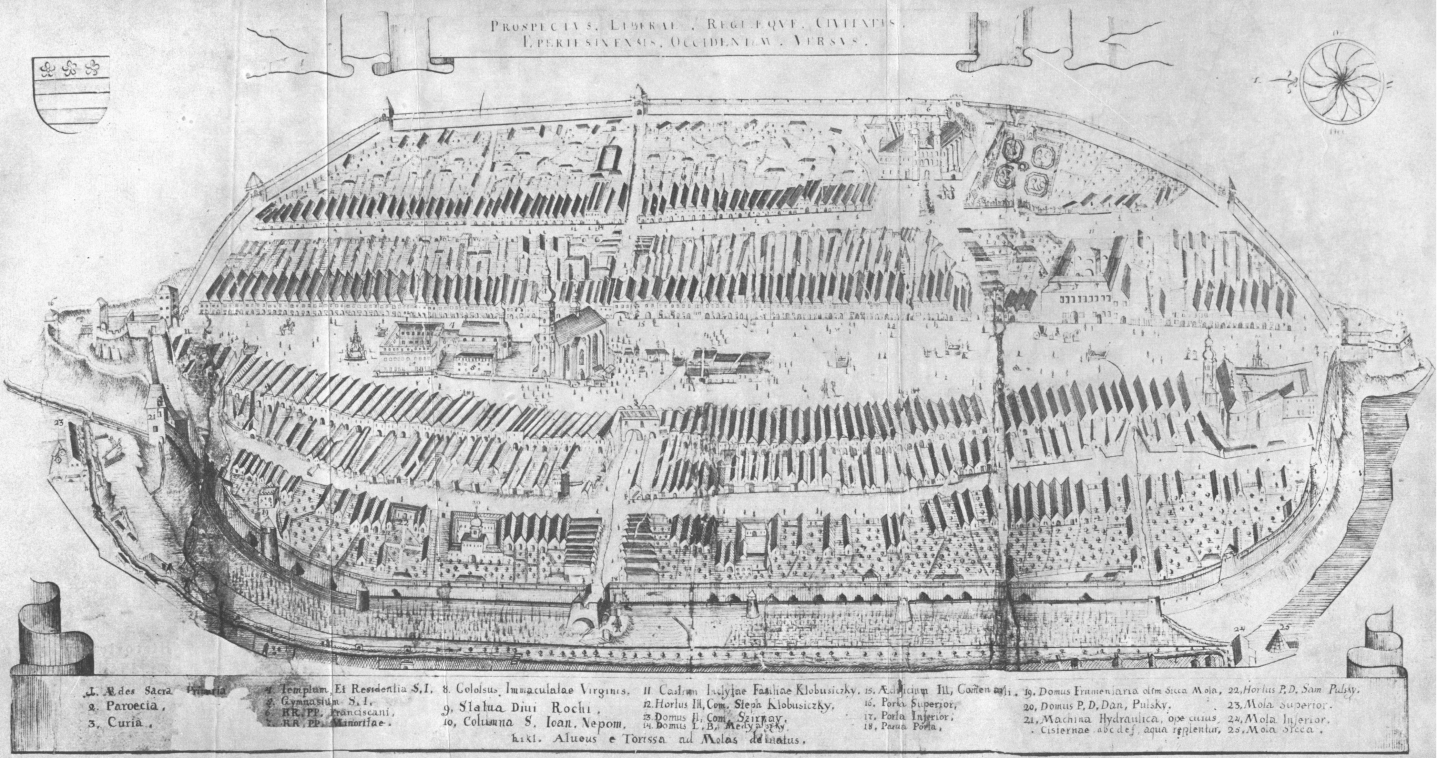 PROSPECTVS. LIBERAE. REGIEQVE. CIVITATIS.
EPERIESINENSIS. OCCIDENTEM. VERSVS.
23
24
25
1. Ædes Sacra
2. Paroecia.
3. Curia.
4. Templum, Et Residentia S, I.
5. Gymnasium S, I,
6. RR, PP, Franciscani,
7. RR, PP, Minoritae.
8. Colossus, Immaculatae Virginis,
9, Statua Diui Rochi,
10, Columna S, Ioan, Nepom,
11 Castrum Familiae Klobusiczky,
12, Hortus Ill, Com, Steph Klobusiczky,
13 Domus Ill, Com, Szirmay,
14 Domus L, B,
15,
16, Porta Superior,
17, Porta Inferior,
18, Porta
19, Domus Frumentaria olim Sicca Mola,
20, Domus P, D, Dan, Pulsky,
21, Machina Hydraulica, ope cuius
Cisternae abcdef aqua replentur,
22, Hortus P, D, Sam Pulsky.
23, Mola Superior.
24, Mola Inferior.
25, Mola Sicca.
Alueus e Torissa ad Molas